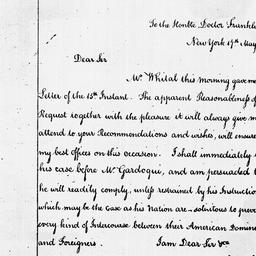 To the Honble Doctor Frankl
New York 19th May
Dear Sir
Mr. Whital this morning gave me
Letter of the 15th Instant. The apparent Reasonableness of
Request together with the pleasure it will always give m
attend to your Recommendations and wishes, will ensure
my best offices on this occasion. I shall immediately
his case before Mr. Gardoqui, and am persuaded t
he will readily comply, unless restrained by his Instructio
which may be the case as his Nation are solicitous to preve
every kind of Intercourse between their American Domini
and Foreigners. I am Dear Sir &ca